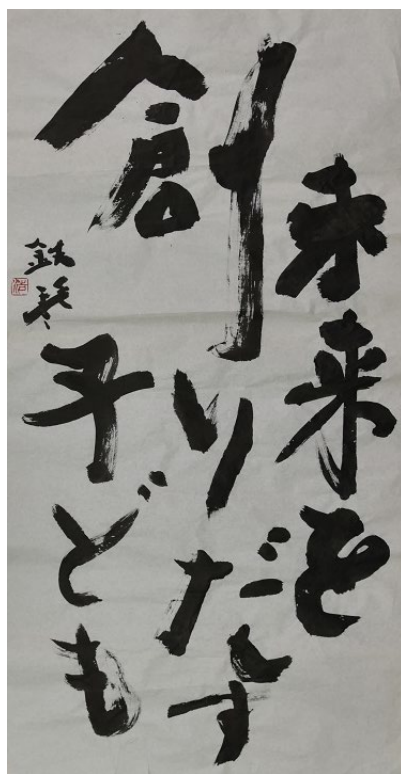 未来を
創りだす
子ども